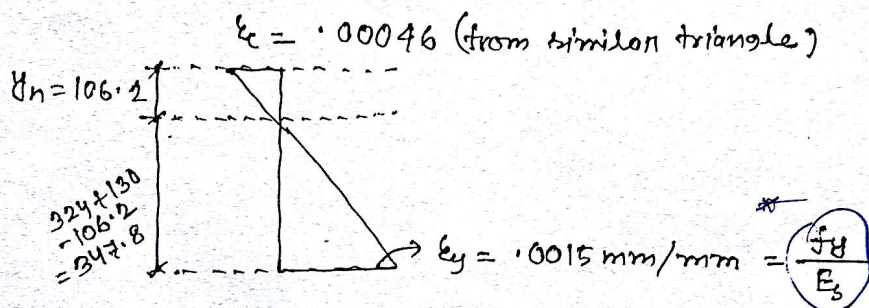 εc = ·00046 (from similar triangle)
yn = 106·2
324+130
-106·2
= 347·8
εy = ·0015 mm/mm = fy/Es